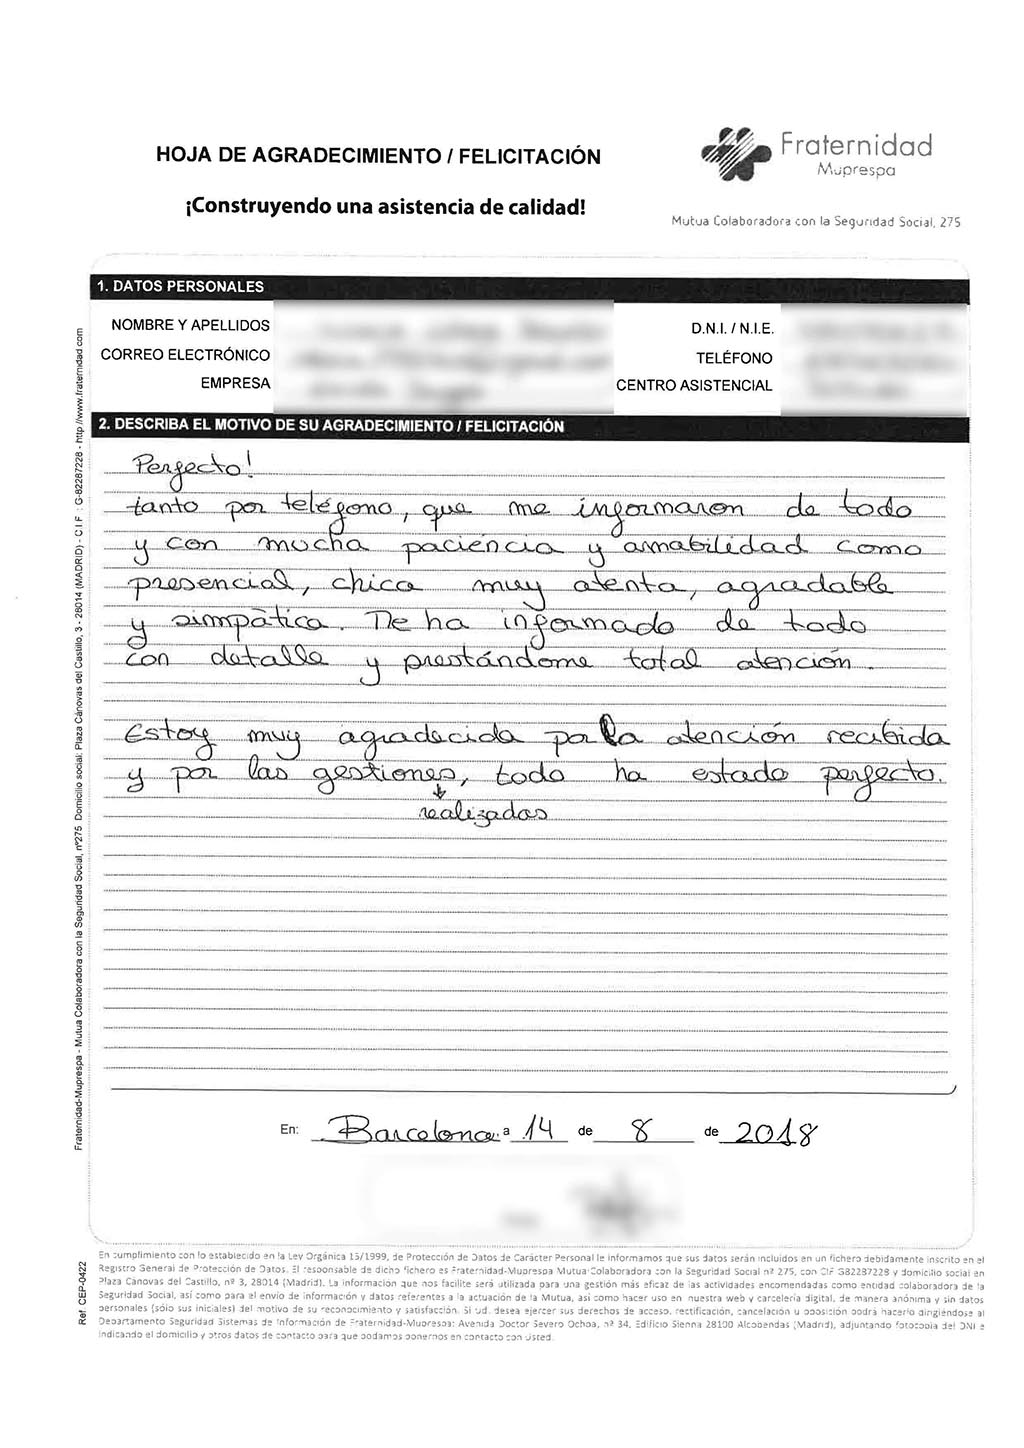 HOJA DE AGRADECIMIENTO / FELICITACIÓN
¡Construyendo una asistencia de calidad!
Fraternidad
Muprespa
Mutua Colaboradora con la Seguridad Social, 275
1. DATOS PERSONALES
NOMBRE Y APELLIDOS
D.N.I. / N.I.E.
CORREO ELECTRÓNICO
TELÉFONO
EMPRESA
CENTRO ASISTENCIAL
2. DESCRIBA EL MOTIVO DE SU AGRADECIMIENTO / FELICITACIÓN
Perfecto!
tanto por teléfono, que me informaron de todo
y con mucha paciencia y amabilidad como
presencial, chica muy atenta, agradable
y simpàtica. Me ha informado de todo
con detalle y prestándome total atención.
Estoy muy agradecida por la atención recibida
y por las gestiones, todo ha estado perfecto.
realizadas
En: Barcelona a 14 de 8 de 2018
Fraternidad-Muprespa - Mutua Colaboradora con la Seguridad Social, nº275 Domicilio social: Plaza Cánovas del Castillo, 3 - 28014 (MADRID) - C.I.F. : G-82287228 - http://www.fraternidad.com
Ref CEP-0422
En cumplimiento con lo establecido en la Ley Orgánica 15/1999, de Protección de Datos de Carácter Personal le informamos que sus datos serán incluidos en un fichero debidamente inscrito en el
Registro General de Protección de Datos. El responsable de dicho fichero es Fraternidad-Muprespa Mutua Colaboradora con la Seguridad Social nº 275, con CIF G82287228 y domicilio social en
Plaza Cánovas del Castillo, nº 3, 28014 (Madrid). La información que nos facilite será utilizada para una gestión más eficaz de las actividades encomendadas como entidad colaboradora de la
Seguridad Social, así como para el envío de información y datos referentes a la actuación de la Mutua, así como hacer uso en nuestra web y cartelería digital, de manera anónima y sin datos
personales (sólo sus iniciales) del motivo de su reconocimiento y satisfacción. Si ud. desea ejercer sus derechos de acceso, rectificación, cancelación u oposición podrá hacerlo dirigiéndose al
Departamento Seguridad Sistemas de Información de Fraternidad-Muprespa: Avenida Doctor Severo Ochoa, nº 34, Edificio Sienna 28100 Alcobendas (Madrid), adjuntando fotocopia del DNI e
indicando el domicilio y otros datos de contacto para que podamos ponernos en contacto con Usted.